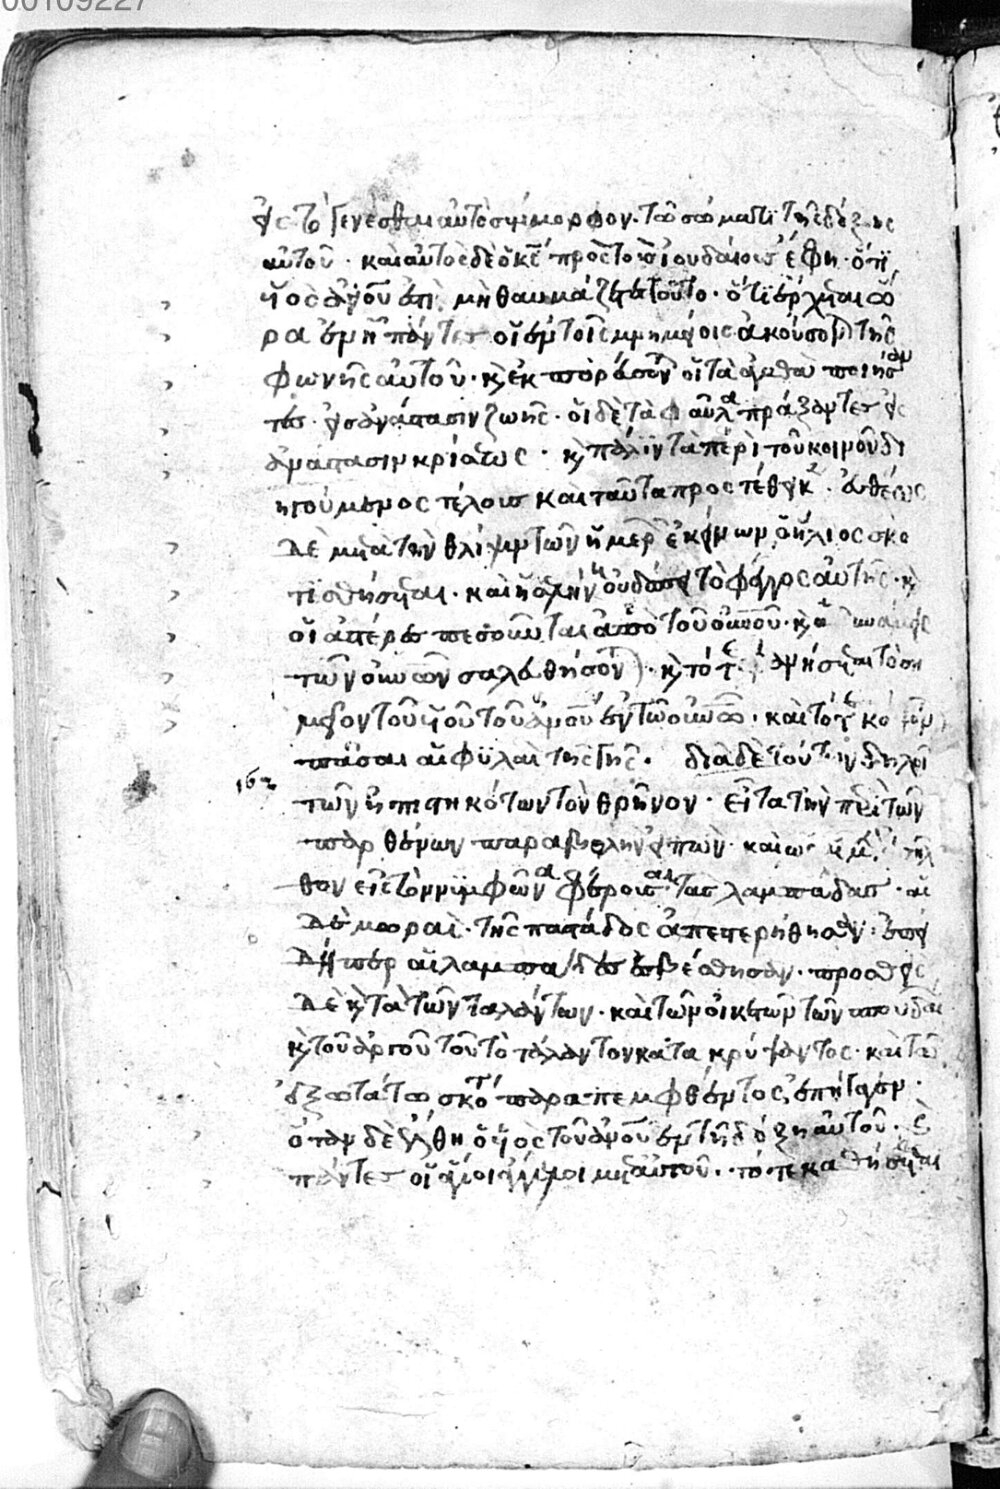 00109227
εἰς τὸ γενέσθαι αὐτὸ σύμμορφον τῶ σώματι τῆς δόξης
αὐτοῦ · καὶ αὐτὸς δὲ ὁ κς πρὸς τοὺς ἰουδαίους ἔφη · ὅτι
υἱὸς ἀνου ἐστὶ μὴ θαυμάζετε τοῦτο · ὅτι ἔρχεται ὥ
ρα ἐν ἧ πάντες οἱ ἐν τοῖς μνημείοις ἀκούσονται τῆς
φωνῆς αὐτοῦ · κ ἐκπορεύσονται οἱ τὰ ἀγαθὰ ποιήσαν
τες · εἰς ἀνάστασιν ζωῆς · οἱ δὲ τὰ φαῦλα πράξαντες εἰς
ἀνάστασιν κρίσεως · κ πάλιν τὰ περὶ τοῦ κοινοῦ δι
ηγούμενος τέλους καὶ ταῦτα προστέθεικε · εὐθέως
δὲ μετὰ τὴν θλίψιν τῶν ἡμερῶν ἐκείνων ὁ ἥλιος σκο
τισθήσεται · καὶ ἡ σελήνη οὐ δώσει τὸ φέγγος αὐτῆς · κ
οἱ ἀστέρες πεσοῦνται ἀπὸ τοῦ οὐνου · κ αἱ δυνάμεις
τῶν οὐνῶν σαλευθήσονται · κ τότε φανήσεται τὸ ση
μεῖον τοῦ υἱοῦ τοῦ ἀνου ἐν τῶ οὐνω · καὶ τότε κόψονται
πᾶσαι αἱ φυλαὶ τῆς γῆς · διὰ δὲ τούτων δηλοῖ
τῶν ἠπιστηκότων τὸν θρῆνον · εἶτα τὴν περὶ τῶν
162
παρθένων παραβολὴν εἰπὼν · καὶ ὡς
θον εἰς τὸν νυμφῶνα φέρουσαι τὰς λαμπάδας · αἱ
δὲ μωραὶ · τῆς παστάδος ἀπεστερήθησαν · ἐπει
δήπερ αἱ λαμπάδες ἐσβέσθησαν · προσθεὶς
δὲ κ τὰ τῶν ταλάντων · καὶ τῶν οἰκετῶν τῶν σπουδαίων
κ τοῦ ἀργοῦ τοῦ τὸ τάλαντον κατακρύψαντος · καὶ τῶ
ἐξωτάτω σκότει παραπεμφθέντος ἐπήγαγεν ·
ὅταν δὲ ἔλθη ὁ υἱὸς τοῦ ἀνου ἐν τῆ δόξη αὐτοῦ · κ
πάντες οἱ ἅγιοι ἄγγελοι μετ αὐτοῦ · τότε καθήσεται